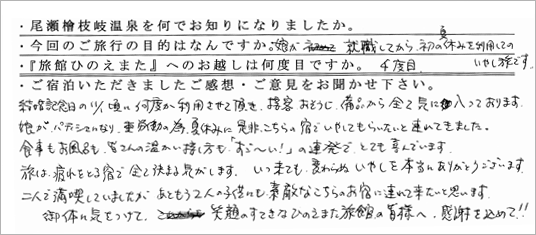 ・尾瀬檜枝岐温泉を何でお知りになりましたか。
・今回のご旅行の目的はなんですか。娘が 就職してから、初の夏休みを利用しての
いやし旅です。
・『旅館ひのえまた』へのお越しは何度目ですか。 4度目
・ご宿泊いただきましたご感想・ご意見をお聞かせ下さい。
結婚記念日の11/1頃に何度か利用させて頂き、接客 おそうじ、備品から全て気に入っております。
娘がパティシエになり、重労働の為、夏休みに是非、こちらの宿でいやしてもらいたいと連れてきました。
食事もお風呂も、皆さんの温かい接し方も「すご〜い!」の連発で、とても喜んでいます。
旅は、疲れをとる宿で全て決まる気がします。 いつ来ても、変わらぬ いやしを本当にありがとうございます。
二人で満喫していましたが あともう2人の子供にも素敵なこちらのお宿に連れて来たいと思います。
御体に気をつけて、 笑顔のすてきなひのえまた旅館の皆様へ、感謝を込めて!!